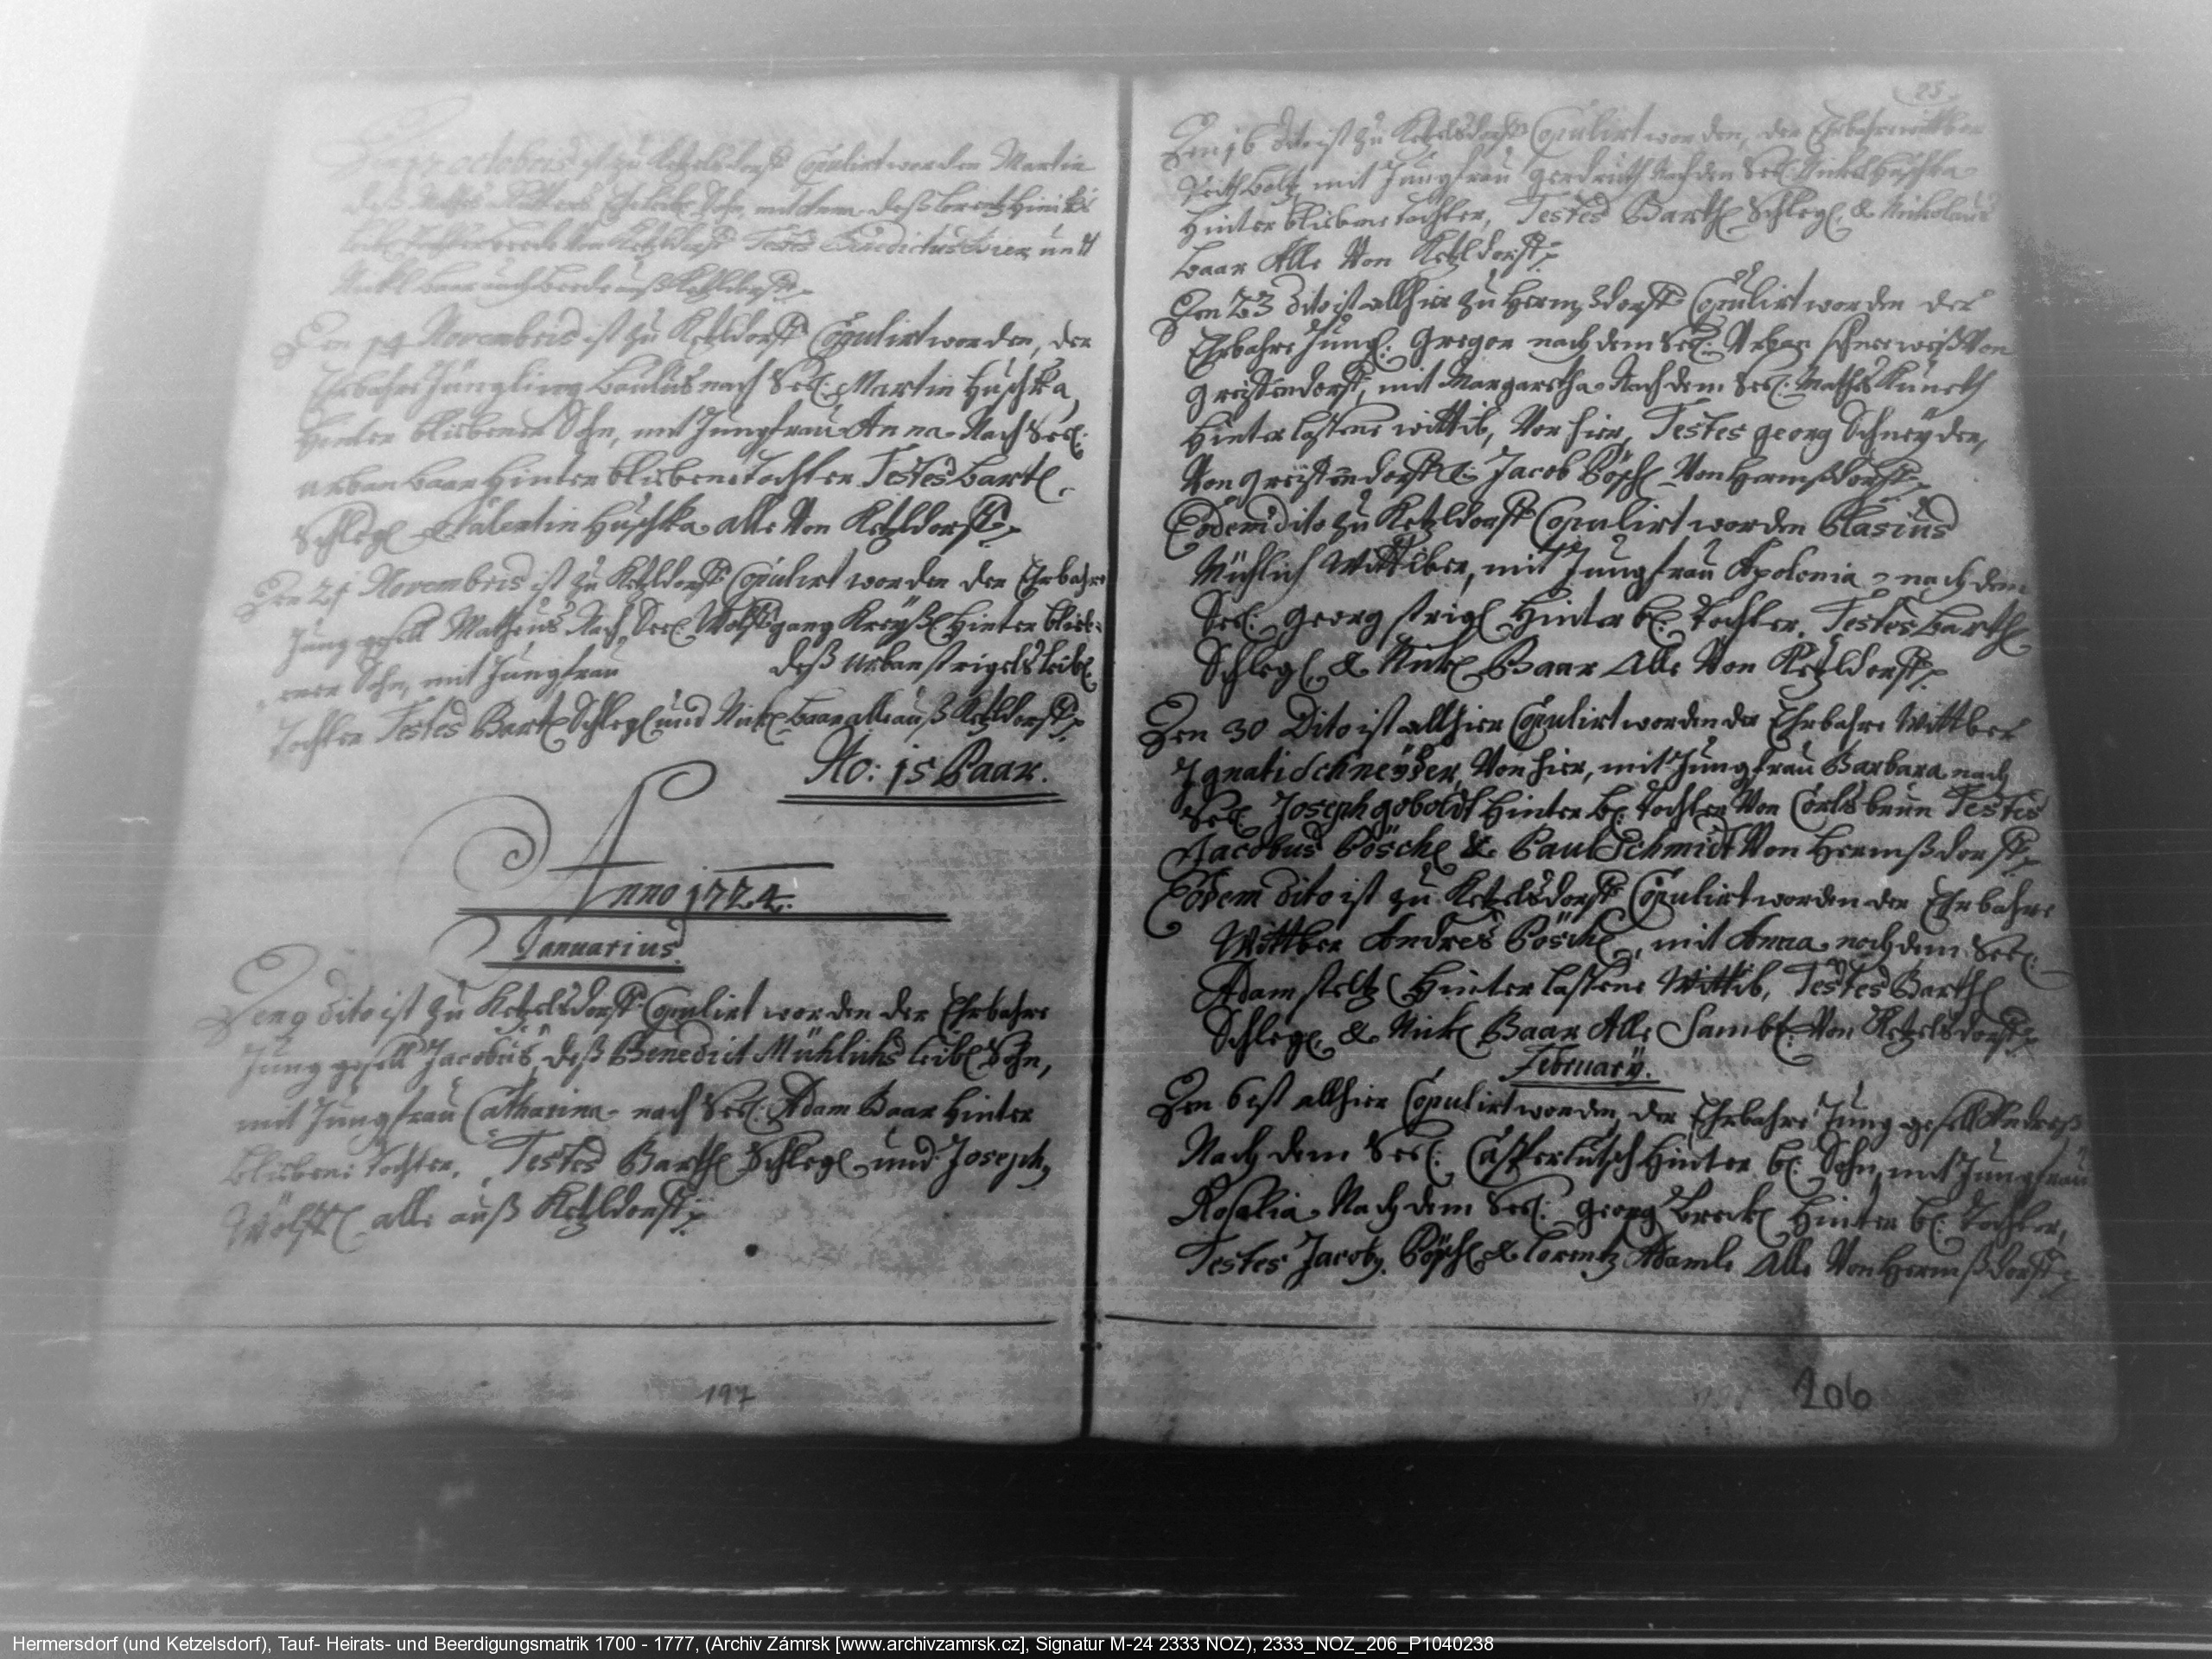 octobris ist zu Ketzelsdorff Copulirt worden Martin
deß Sohn, mit deß Lorentz
Tochter beede von Ketzldorff Testes Benedictus und
Nickl Baar auch beede auß Ketzldorff
Den 14 Novembris ist zu Ketzldorff Copulirt worden, der
Ehrbahre Jüngling Paulus nach Seel: Martin Huschka,
Hinter blibener Sohn, mit Jungfrau Anna Nach Seel:
urban baar Hinter blibene tochter Testes Bartl
Schlegl & Valentin Huschka alle Von Ketzldorff
Den 21 Novembris ist zu Ketzldorff Copulirt worden der Ehrbahre
Jung gesell Matheus Nach Seel Wolffgang Hinter blieb-
ener Sohn, mit Jungfrau deß Urban strigels leibl
tochter Testes Bartl Schlegl und Nickl baar alle auß Ketzldorff
No: 15 Paar.
Anno 1724.
Januarius.
Den 9 dito ist zu Ketzelsdorff Copulirt worden der Ehrbahre
Jung gesell Jacobus, deß Benedict Mühlichs leibl Sohn,
mit Jungfrau Catharina nach Seel: Adam Baar Hinter
blibene tochter, Testes Barthl Schlegl und Joseph
Wölffl alle auß Ketzldorff
25
Den 16 dito ist zu Ketzelsdorff Copulirt worden, der Ehrbahre wittber
Veith boltz mit Jungfrau gerdruth Nach den Seel Nickl Huschka
Hinter blibene tochter, Testes Barthl Schlegl & Nickolaus
baar Alle Von Ketzldorff
Den 23 dito ist allhier zu Hermßdorff Copulirt worden der
Ehrbahre Jungl: Gregor nach dem Seel: Urban schneeweiß Von
greiffendorff, mit Margaretha Nach dem Seel: Mathes Kuneth
Hinter lassene wittib, Von hier, Testes georg Schneyder,
Von greiffendorff & Jacob Pöschl Von Hermßdorff
Eodem dito zu Ketzldorff Copulirt worden Blasius
Mühlich Wittiber, mit Jungfrau Apolonia nach dem
Seel: georg strigl Hinter bl: tochter. Testes barthl
Schlegl & Nickl Baar Alle Von Ketzldorff
Den 30 Dito ist allhier Copulirt worden der Ehrbahre Wittber
Ignati Schneyder, Von hier, mit Jungfrau Barbara nach
Seel Joseph goboldt Hinter bl: tochter Von Corlsbrun Testes
Jacobus Pöschl & Paul Schmidt Von Hermßdorff
Eodem dito ist zu Ketzelsdorff Copulirt worden der Ehrbahre
Wittber Andres Pöschl, mit Anna nach dem Seel:
Adam steltz Hinter lassene Wittib, Testes Barthl
Schlegl & Nickl Baar Alle Sambt: Von Ketzelsdorff
February.
Den 6 ist allhier Copulirt worden, der Ehrbahre Jung gesell Andreß
Nach dem Seel: Casper lutsch Hinter bl: Sohn, mit Jungfrau
Rosalia Nach dem Seel: georg Hinter bl: tochter,
Testes Jacob Pöschl & lorentz Adamle Alle Von Hermßdorff
197
206
Hermersdorf (und Ketzelsdorf), Tauf- Heirats- und Beerdigungsmatrik 1700 - 1777, (Archiv Zámrsk [www.archivzamrsk.cz], Signatur M-24 2333 NOZ), 2333_NOZ_206_P1040238